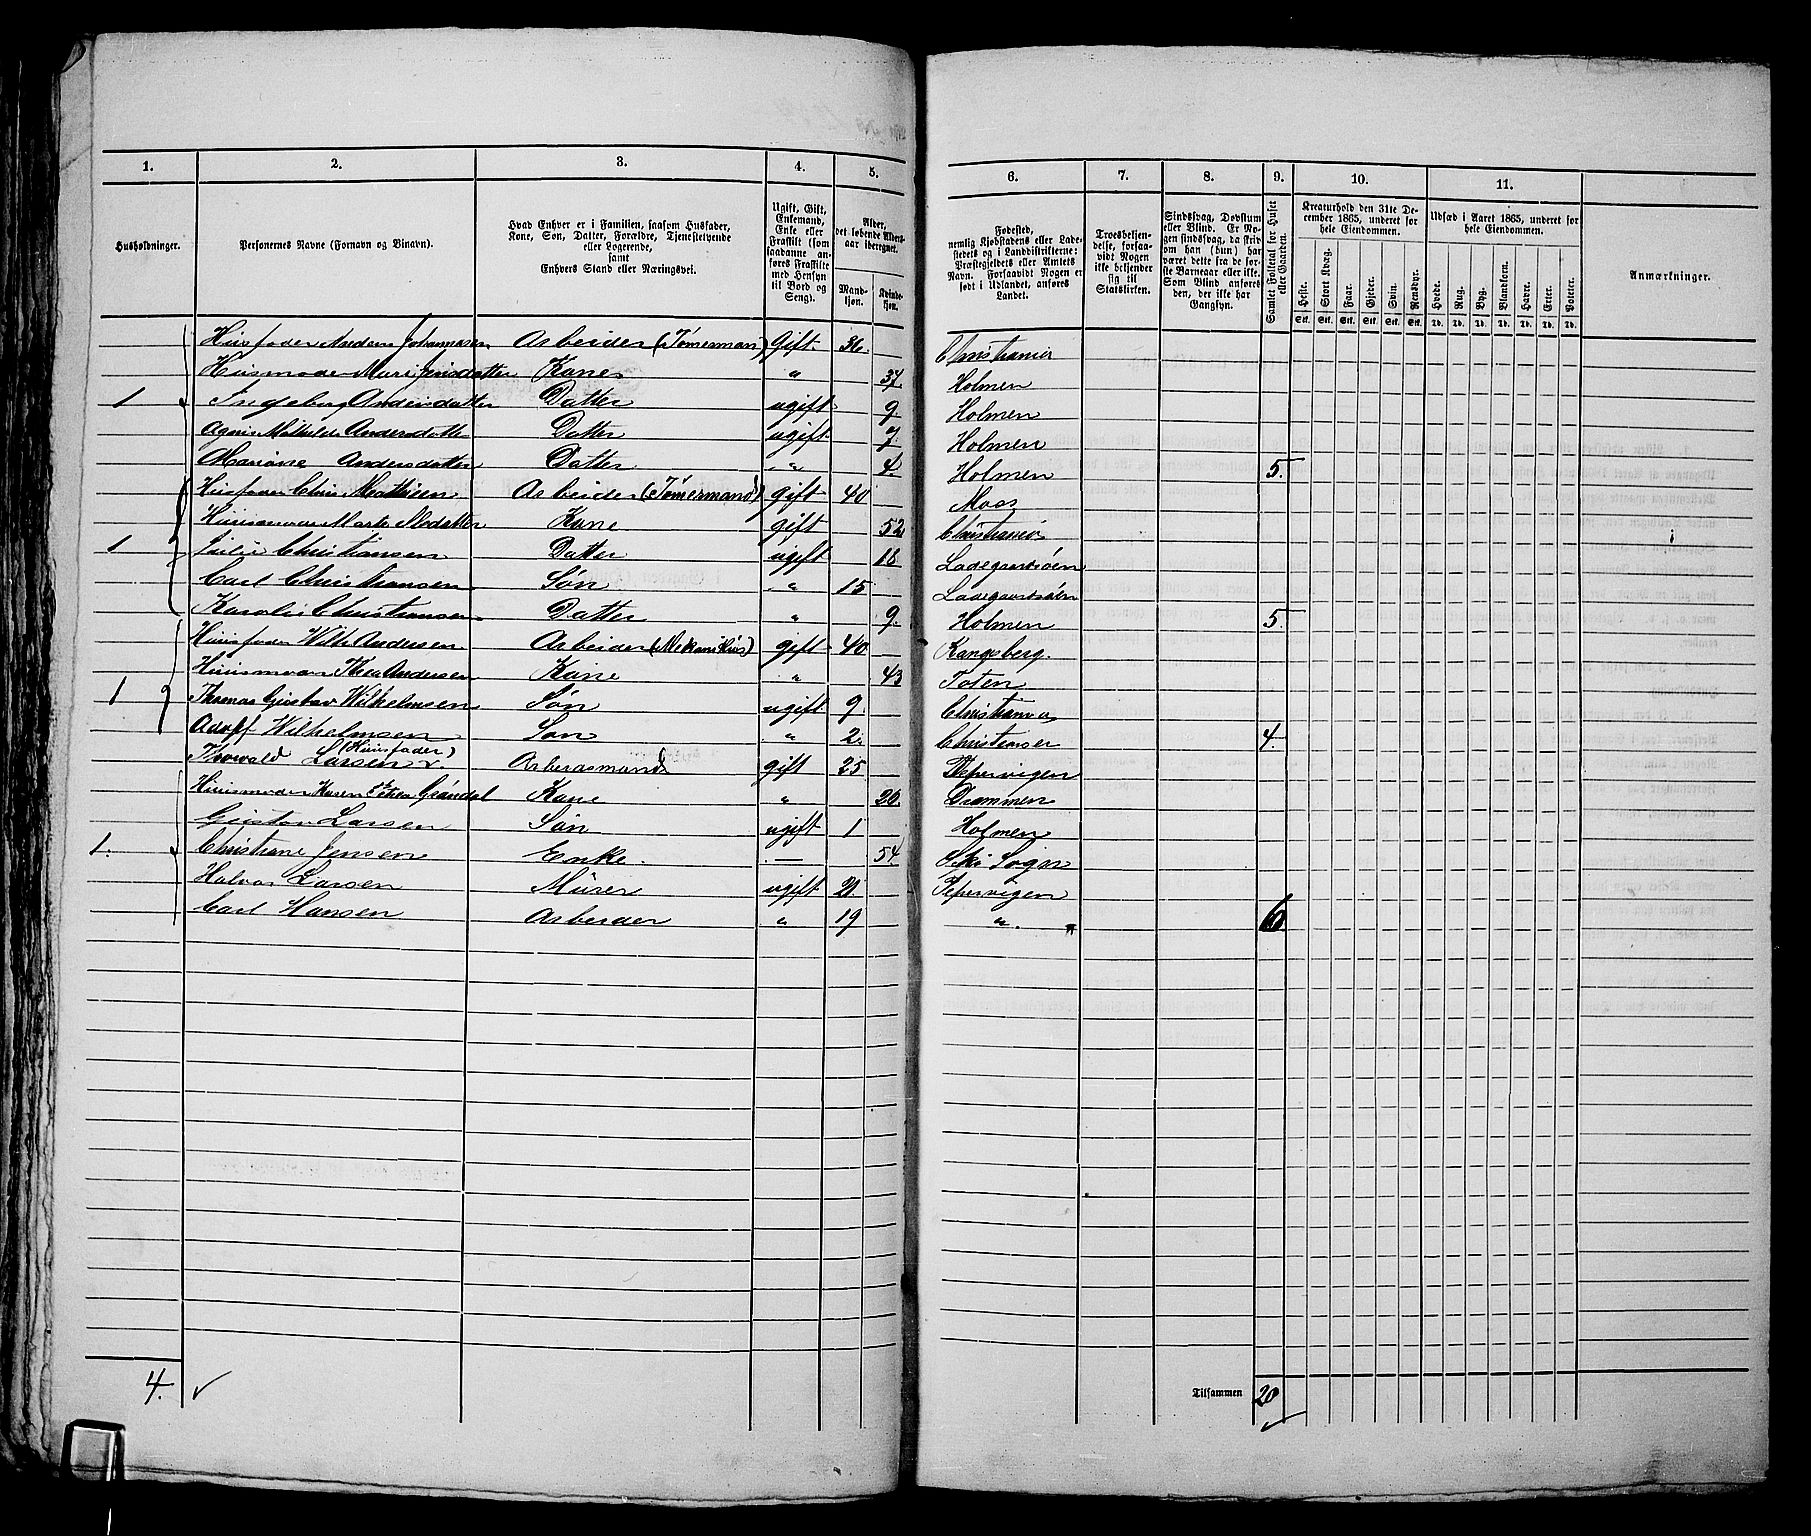 1. 2. 3. 4. 5. 6. 7. 8. 9. 10. 11.
Husholdninger.
Personernes Navne (Fornavn og Tilnavn).
Hvad Enhver er i Familien, saasom Husfader, Kone, Søn, Datter, Forældre, Tjenestetyende eller Logerende, samt Enhvers Stand eller Næringsvei.
Ugift, Gift, Enkemand, Enke eller Fraskilt (som saadanne anføres Fraskilte med Hensyn til Bord og Seng).
Alder, det løbende Alders-aar iberegnet.
Mandkjøn. Kvindekjøn.
Fødested, nemlig Kjøbstadens eller Ladestedets og i Landdistrikterne: Præstegjeldets eller Amtets Navn. Forsaavidt Nogen er født i Udlandet, anføres Landet.
Troesbekjendelse, forsaavidt Nogen ikke bekjender sig til Statskirken.
Sindssvag, Døvstum eller Blind. Er Nogen sindssvag, da skrives om han (hun) har været dette fra de første Barneaar eller ikke. Som Blind anføres den, der ikke har Gangsyn.
Samlet Folketal for Huset eller Gaarden.
Kreaturhold den 31te December 1865, underet for hele Eiendommen.
Heste. Stort Kvæg. Faar. Gjeder. Svin. Rensdyr.
Stk. Stk. Stk. Stk. Stk. Stk.
Udsæd i Aaret 1865, underet for hele Eiendommen.
Hvede. Rug. Byg. Blandkorn. Havre. Erter. Poteter.
Td. Td. Td. Td. Td. Td. Td.
Anmærkninger.
Huusfader Anders Johannesen Arbeider (Tømerman) Gift. 36. Christiania
Huusmoder Mari Jensdatter Kone " 37. Holmen
1 Ingeborg Andersdatter Datter ugift 9. Holmen
Agnis Mathilde Andersdatter Datter ugift 7. Holmen
Mariane Andersdatter Datter " 4. Holmen 5.
Huusfader Chris Mathisen Arbeider (Tømermand) gift 40 Moss
Huusmoder Marte datter Kone gift 52 Christiania
1 Julie Christiansen Datter ugift 18 Ladegaardsöen
Carl Christiansen Søn " 15 Ladegaardsöen
Karoline Christiansen Datter " 9. Holmen 5.
Huusfader Wilh Andersen Arbeider (Mekanikus) gift 40 Kongsberg.
Huusmoder Thea Andersen Kone " 43 Toten
1 Thomas Gustav Wilhelmsen Søn ugift 9. Christiania
Adolf Wilhelmsen Søn " 2. Christiania 4.
Thorvald Larsen (Huusfader) Arbeidsmand gift 25 Pepervigen
Huusmoder Karen Petrea Gröndal Kone " 20. Drammen
Gustav Larsen Søn ugift 1 Holmen
1. Christiane Jensen Enke. — 54. Ski Sogn
Halvor Larsen Murer ugift 21. Pepervigen
Carl Hansen Arbeider " 19 " 6
4.
Tilsammen 20